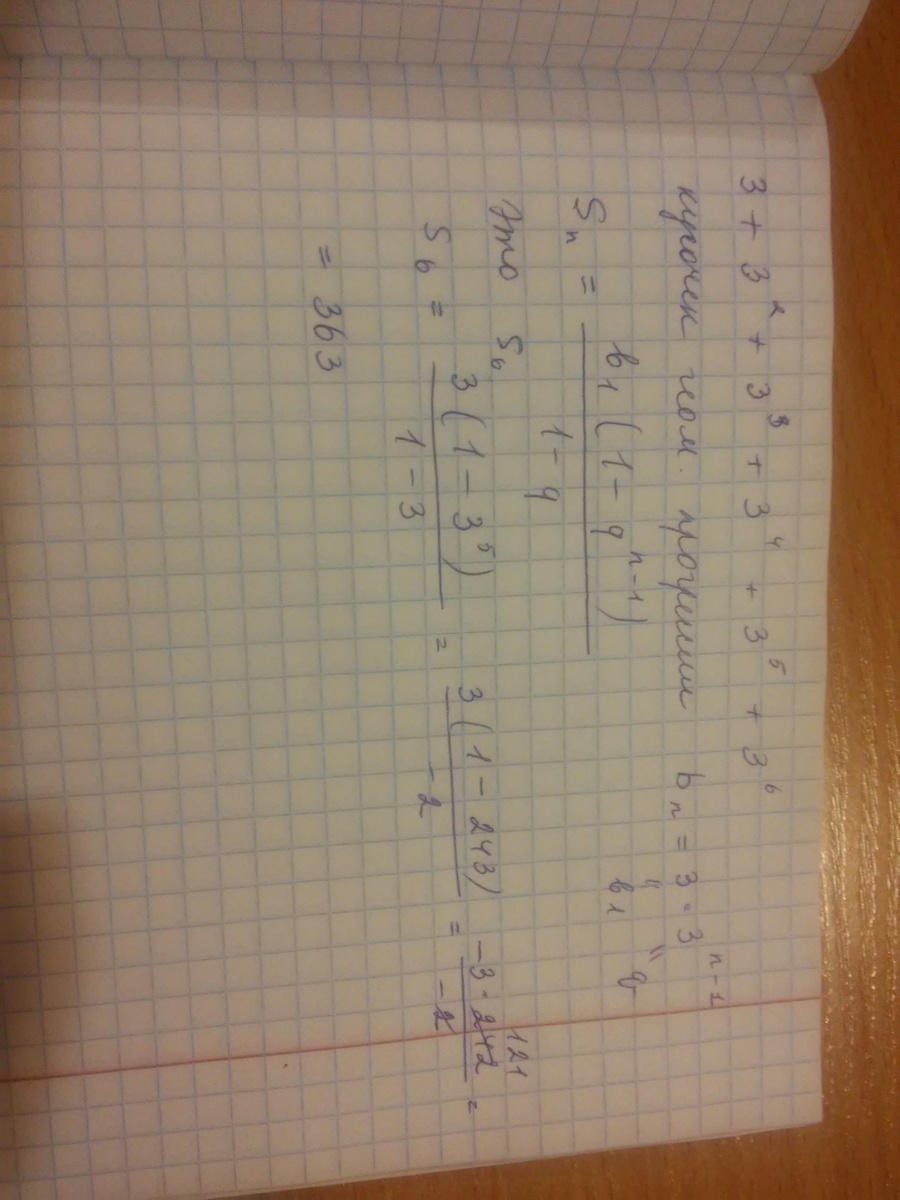 3 + 3² + 3³ + 3⁴ + 3⁵ + 3⁶
кусочек геом. прогрессии bₙ = 3 · 3ⁿ⁻¹
" b₁ " q
Sₙ = b₁(1 − qⁿ⁻¹) / (1 − q)
Это S₆
S₆ = 3(1 − 3⁵) / (1 − 3) = 3(1 − 243) / −2 = −3 · 242 / −2 =
121
= 363